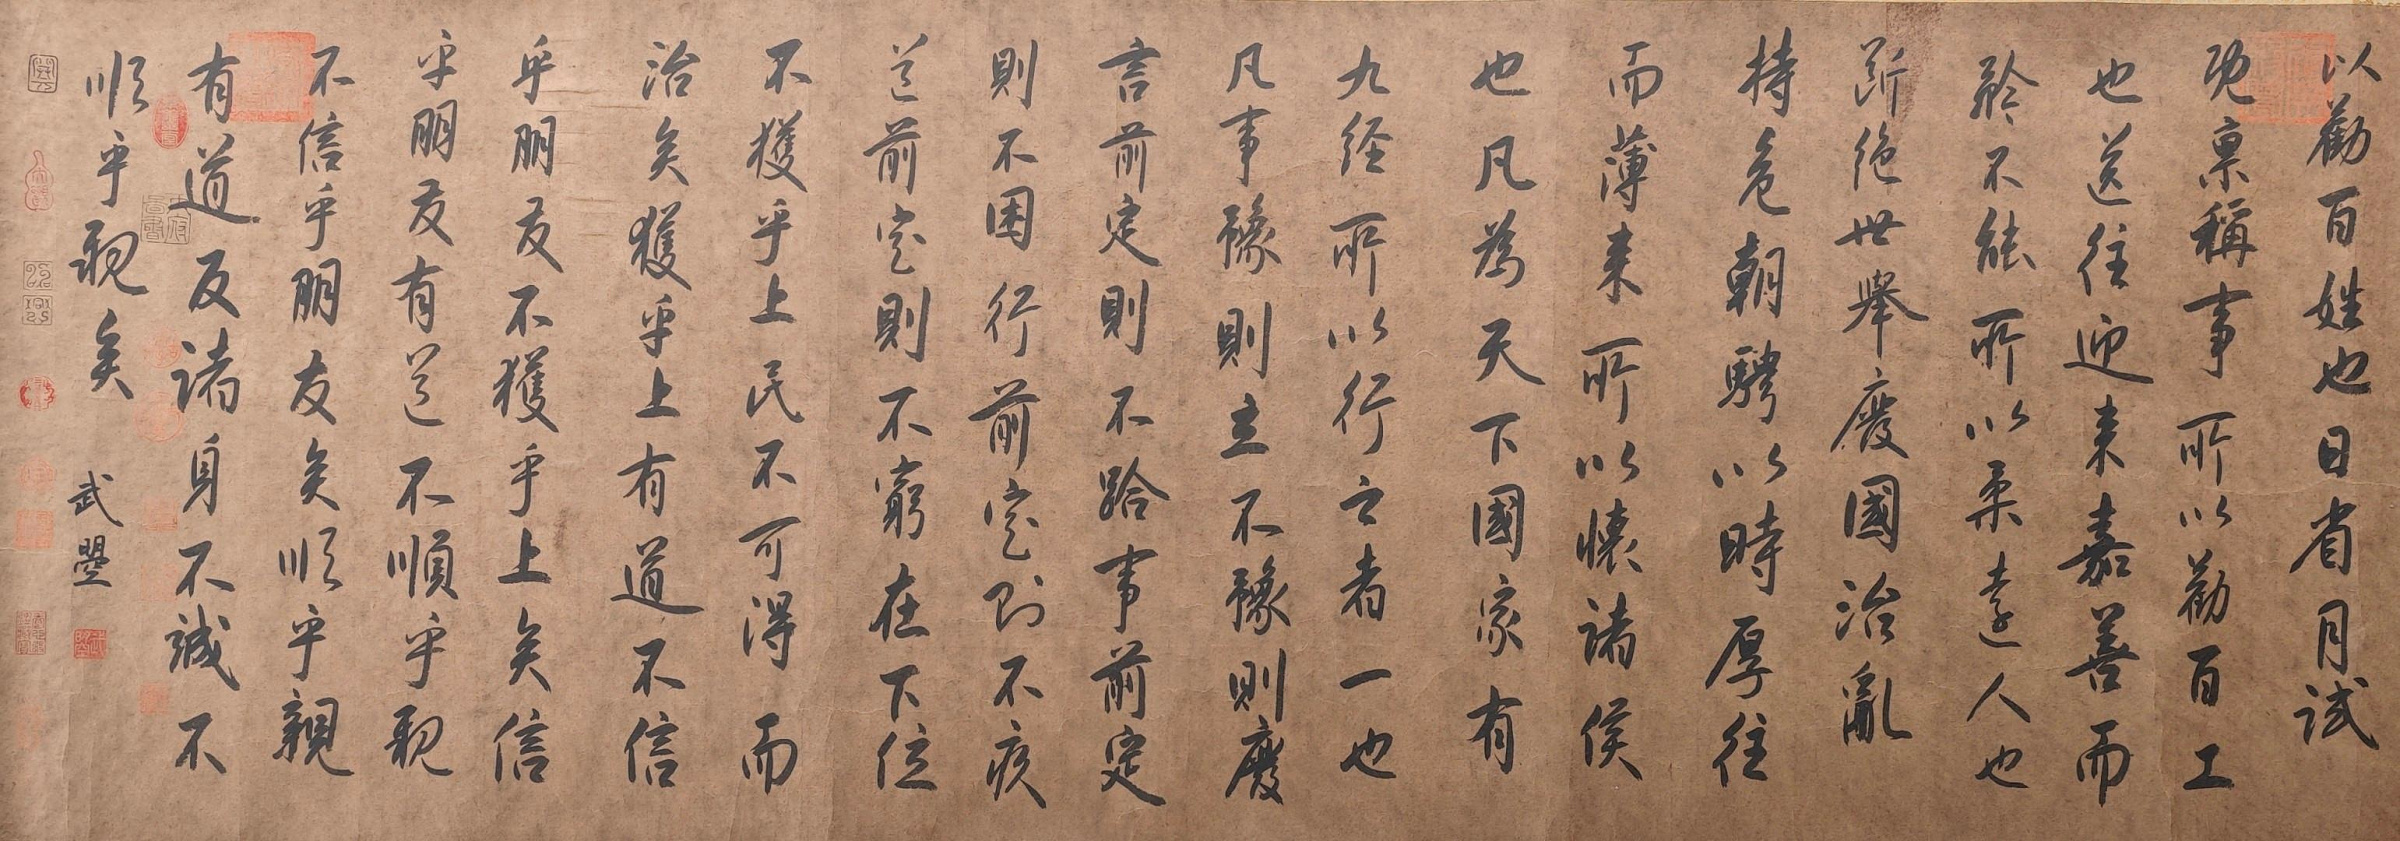 以勸百姓也日省月試
既禀稱事所以勸百工
也送往迎来嘉善而
矜不能所以柔遠人也
斷绝世舉廢國治亂
持危朝聘以時厚往
而薄来所以懷諸侯
也凡為天下國家有
九经所以行之者一也
凡事豫則立不豫則廢
言前定則不跲事前定
則不困行前定則不疚
道前定則不窮在下位
不獲乎上民不可得而
治矣獲乎上有道不信
乎朋友不獲乎上矣信
乎朋友有道不順乎親
不信乎朋友矣順乎親
有道反諸身不誠不
順乎親矣
武曌